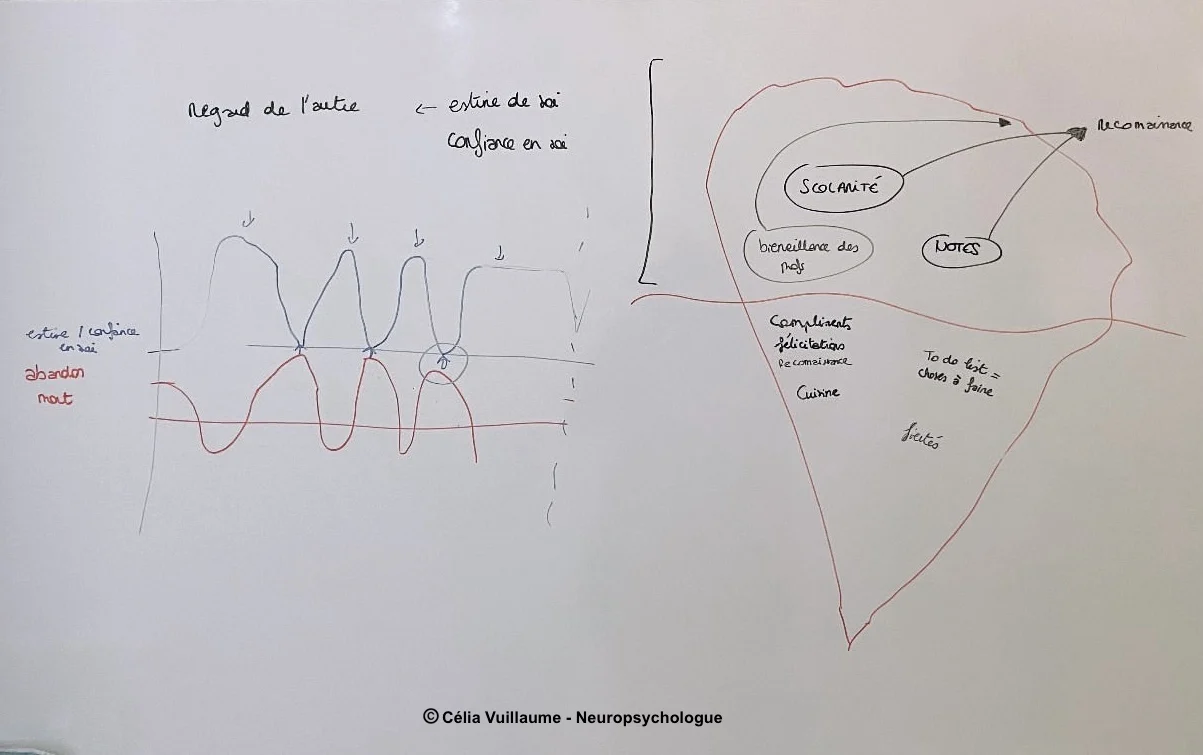 Regard de l'autre ← estime de soi
confiance en soi
estime / confiance
en soi
abandon
mort
Reconnaissance
SCOLARITÉ
bienveillance des
profs
NOTES
Compliments
félicitations
Reconnaissance
Cuisine
To do list =
choses à faire
fiertés
© Célia Vuillaume - Neuropsychologue